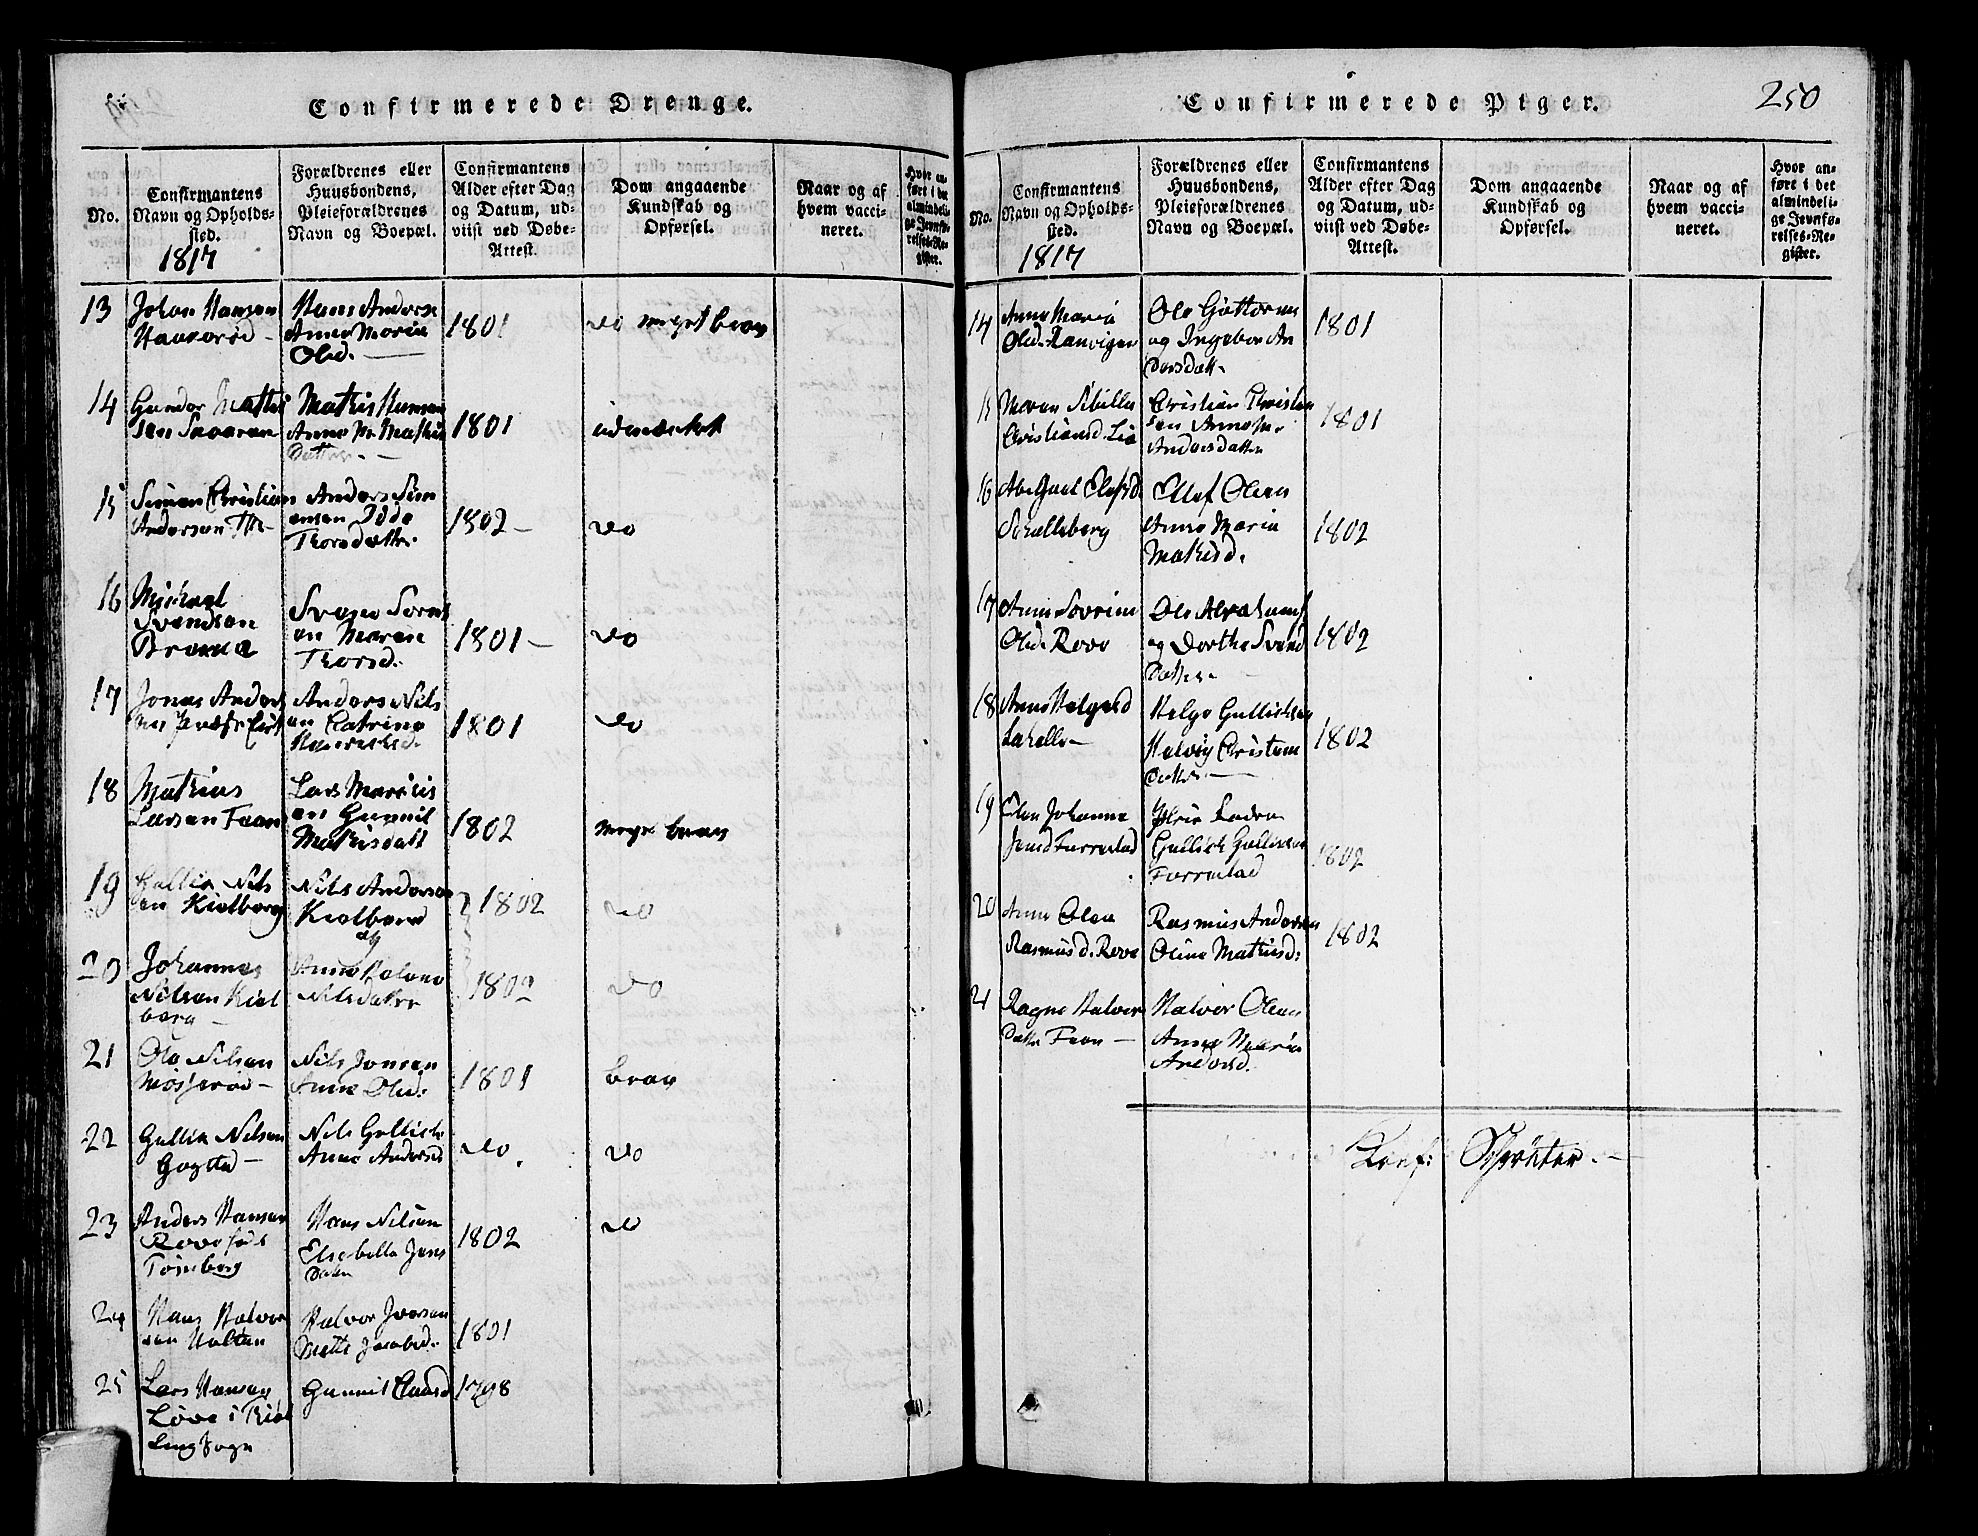 Confirmerede Drenge.
No.
Confirmantens
Navn og Opholds-
sted.
1817
Forældrenes eller
Huusbondens,
Pleieforældrenes
Navn og Boepæl.
Confirmantens
Alder efter Dag
og Datum, ud-
viist ved Døbe-
Attest.
Dom angaaende
Kundskab og
Opførsel.
Naar og af
hvem vacci-
neret.
Hvor an-
ført i det
almindeli-
ge Jevnfø-
relses-Re-
gister.
13
Johan Hansen
Haaserød -
Hans Anderse
Anne Maria
Olsd. -
1801
do meget brav
14
Gundor Mathi
sen
Mathis Hansen
Anne M. Mathis
Datter. -
1801
udmærket
15
Simen Christian
Andersen
Anders Sim
ensen
Thorsdatter.
1802 -
do
16
Michael
Svendsen
Svend Soren
en Maren
Thorsd.
1801 -
do
17
Jonas Anders
Anders Nils
en Catrina
1801
do
18
Mathias
Larsen Faan
Lars
en Gunnil
Mathisdatt
1802
meget brav
19
Gullik Nils
en Kielberg
Nils Andersen
Kielberg
og
1802
do
20
Johannes
Nilsen Kiel
berg -
Anne Helene
Nilsdatter
1802
do
21
Ole Nilsen
Mosserød -
Nils Jonsen
Anne Olsd:
1801
brav
22
Gullik Nilsen
Gogstad -
Nils Gullichs
Anne Andersd
do.
do
23
Anders Hansen
Rove født
Tønsberg
Hans Nilsen
Elsebella Jens
Datter
1802
do
24
Hans Halvor
sen Holtan
Halvor Iversen
Mette Jacobsd.
1801
25
Lars Hansen
Løve i Tiøl
ling Sogn
Gunnil Clausd
1798
Confirmerede Piger.
250
No.
Confirmantens
Navn og Opholds-
sted.
1817
Forældrenes eller
Huusbondens,
Pleieforældrenes
Navn og Boepæl.
Confirmantens
Alder efter Dag
og Datum, ud-
viist ved Døbe-
Attest.
Dom angaaende
Kundskab og
Opførsel.
Naar og af
hvem vacci-
neret.
Hvor an-
ført i det
almindeli-
ge Jevnfø-
relses-Re-
gister.
14
Anne Maria
Olsd. Ranvigen
Ole Guttorms
og Ingebor An
dersdatt.
1801
15
Maren Sibille
Christiansd. Lie
Christian Christen
sen Anne M.
Andersdatter
1801
16
Abelgael Olafsd.
Skalleberg
Ellef Olsen
Anne Maria
Mathisd.
1802
17
Anne Sovrine
Olsd. Rove
Ole Abrahams
og Dorthe Svend
Datter. -
1802
18
Anne Helgesd
Lahelle -
Helge Gullichsen
Helvig Christens
Datter. -
1802
19
Elen Johanne
Jensd Furrestad
Pleie Fader
Gullich Gullichsen
Furrestad
1802
20
Anne Olea
Rasmusd. Rove
Rasmus Andersen
Oline Mathisd:
1802
21
Ragne Halvor
Datter Faan -
Halvor Olsen
Anne Maria
Andersd.
Konf: Schrøter. -